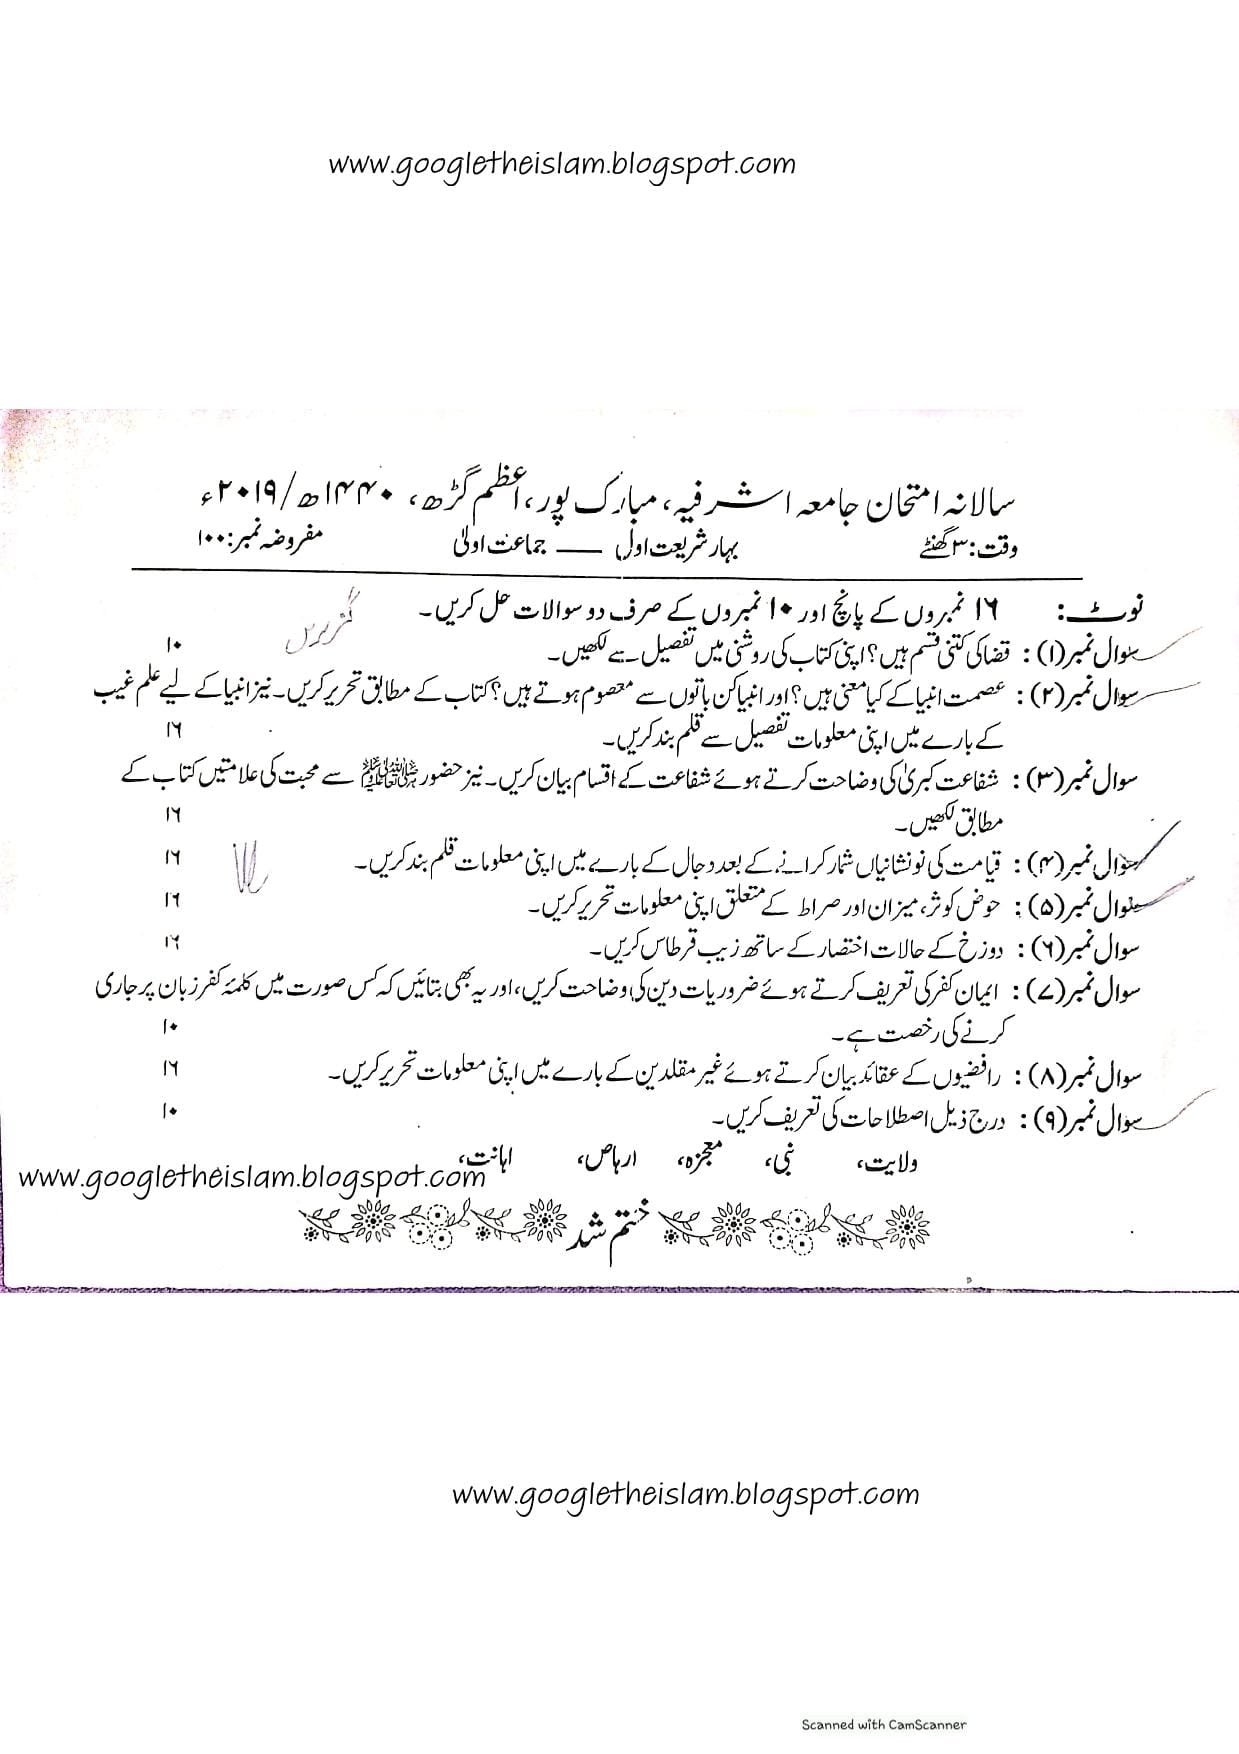 www.googletheislam.blogspot.com
سالانہ امتحان جامعہ اشرفیہ، مبارک پور، اعظم گڑھ، ۱۴۴۰ھ/۲۰۱۹ء
وقت: ۳ گھنٹے بہار شریعت اول — جماعت اولیٰ مفروضہ نمبر: ۱۰۰
نوٹ: ۱۶ نمبروں کے پانچ اور ۱۰ نمبروں کے صرف دو سوالات حل کریں۔
سوال نمبر (۱): قضا کی کتنی قسم ہیں؟ اپنی کتاب کی روشنی میں تفصیل سے لکھیں۔ ۱۰
سوال نمبر (۲): عصمت انبیا کے کیا معنی ہیں؟ اور انبیا کن باتوں سے معصوم ہوتے ہیں؟ کتاب کے مطابق تحریر کریں۔ نیز انبیا کے لیے علم غیب
کے بارے میں اپنی معلومات تفصیل سے قلم بند کریں۔ ۱۶
سوال نمبر (۳): شفاعت کبریٰ کی وضاحت کرتے ہوئے شفاعت کے اقسام بیان کریں۔ نیز حضور ﷺ سے محبت کی علامتیں کتاب کے
مطابق لکھیں۔ ۱۶
سوال نمبر (۴): قیامت کی نو نشانیاں شمار کرانے کے بعد دجال کے بارے میں اپنی معلومات قلم بند کریں۔ ۱۶
سوال نمبر (۵): حوض کوثر، میزان اور صراط کے متعلق اپنی معلومات تحریر کریں۔ ۱۶
سوال نمبر (۶): دوزخ کے حالات اختصار کے ساتھ زیب قرطاس کریں۔ ۱۶
سوال نمبر (۷): ایمان کفر کی تعریف کرتے ہوئے ضروریات دین کی وضاحت کریں، اور یہ بھی بتائیں کہ کس صورت میں کلمۂ کفر زبان پر جاری
کرنے کی رخصت ہے۔ ۱۰
سوال نمبر (۸): رافضیوں کے عقائد بیان کرتے ہوئے غیر مقلدین کے بارے میں اپنی معلومات تحریر کریں۔ ۱۶
سوال نمبر (۹): درج ذیل اصطلاحات کی تعریف کریں۔ ۱۰
ولایت، نبی، معجزہ، ارہاص، اہانت،
www.googletheislam.blogspot.com
ختم شد
www.googletheislam.blogspot.com
Scanned with CamScanner